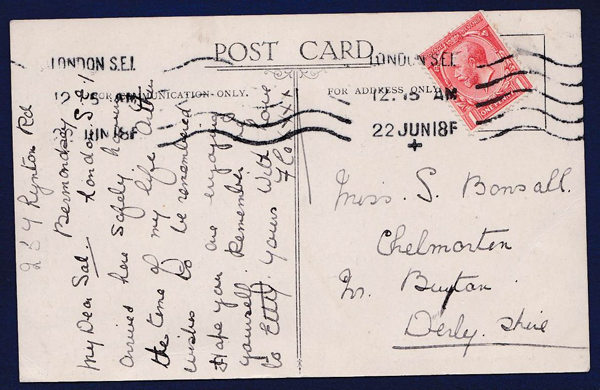 POST CARD
LONDON S.E.1
12.15 AM
22 JUN 18 F
+
LONDON S.E.1
12.15 AM
JUN 18 F
FOR COMMUNICATION ONLY.
FOR ADDRESS ONLY
ONE PENNY
Miss. S. Bonsall.
Chelmorten
Nr. Buxton.
Derby. Shire
Lynton Rd
Bermondsey
London S.E.1
My Dear Sal
arrived here safely having
the time of my life Arthur
wishes to be remembered
Hope you are enjoying
yourself. Remember me
to Yours With Love
Flo xxxx